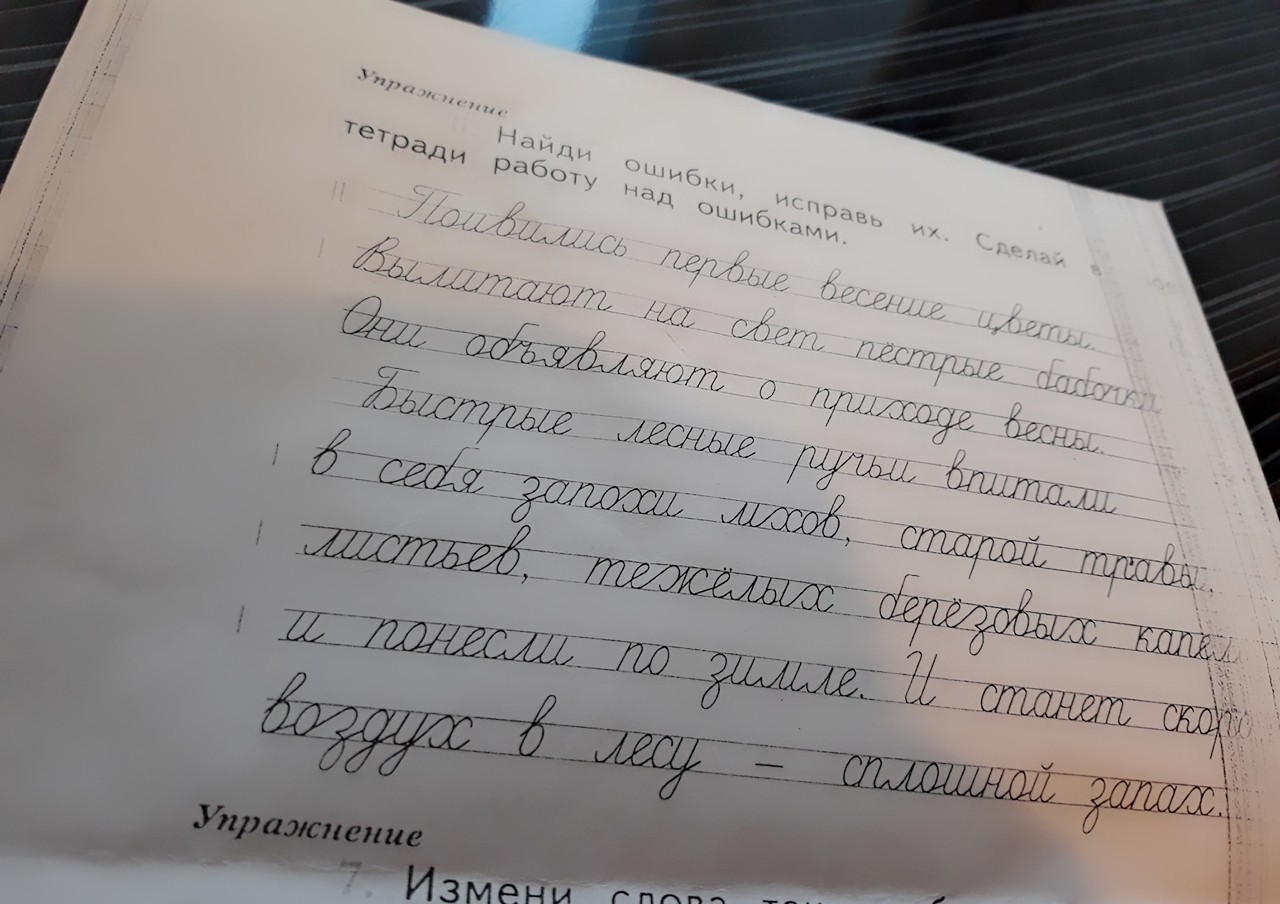 Упражнение
Найди ошибки, исправь их. Сделай в
тетради работу над ошибками.
Поивились первые весение цветы.
Вылитают на свет пёстрые бабочки
Они объявляют о приходе весны.
Быстрые лесные ручьи впитали
в себя запохи мхов, старой травы,
листьев, тежёлых берёзовых капель
и понесли по зимле. И станет скоро
воздух в лесу – сплошной запах.
Упражнение
7. Измени слова